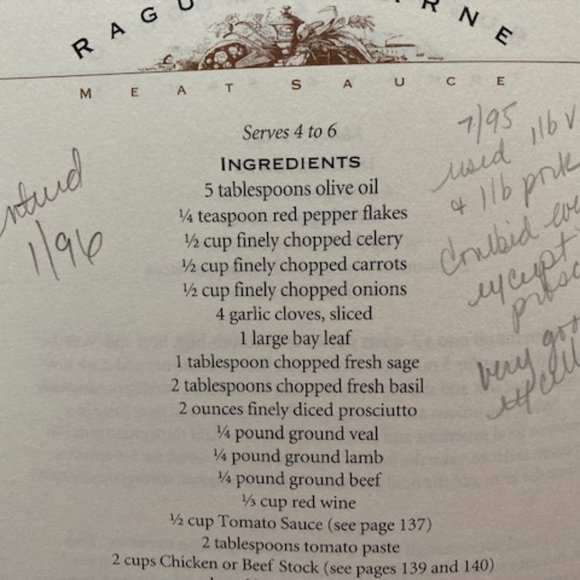 RAGU ARNE
MEAT SAUCE
Serves 4 to 6
INGREDIENTS
5 tablespoons olive oil
¼ teaspoon red pepper flakes
½ cup finely chopped celery
½ cup finely chopped carrots
½ cup finely chopped onions
4 garlic cloves, sliced
1 large bay leaf
1 tablespoon chopped fresh sage
2 tablespoons chopped fresh basil
2 ounces finely diced prosciutto
¼ pound ground veal
¼ pound ground lamb
¼ pound ground beef
⅓ cup red wine
½ cup Tomato Sauce (see page 137)
2 tablespoons tomato paste
2 cups Chicken or Beef Stock (see pages 139 and 140)
1/96
7/95
used 1lb v
& 1lb pork
except
very